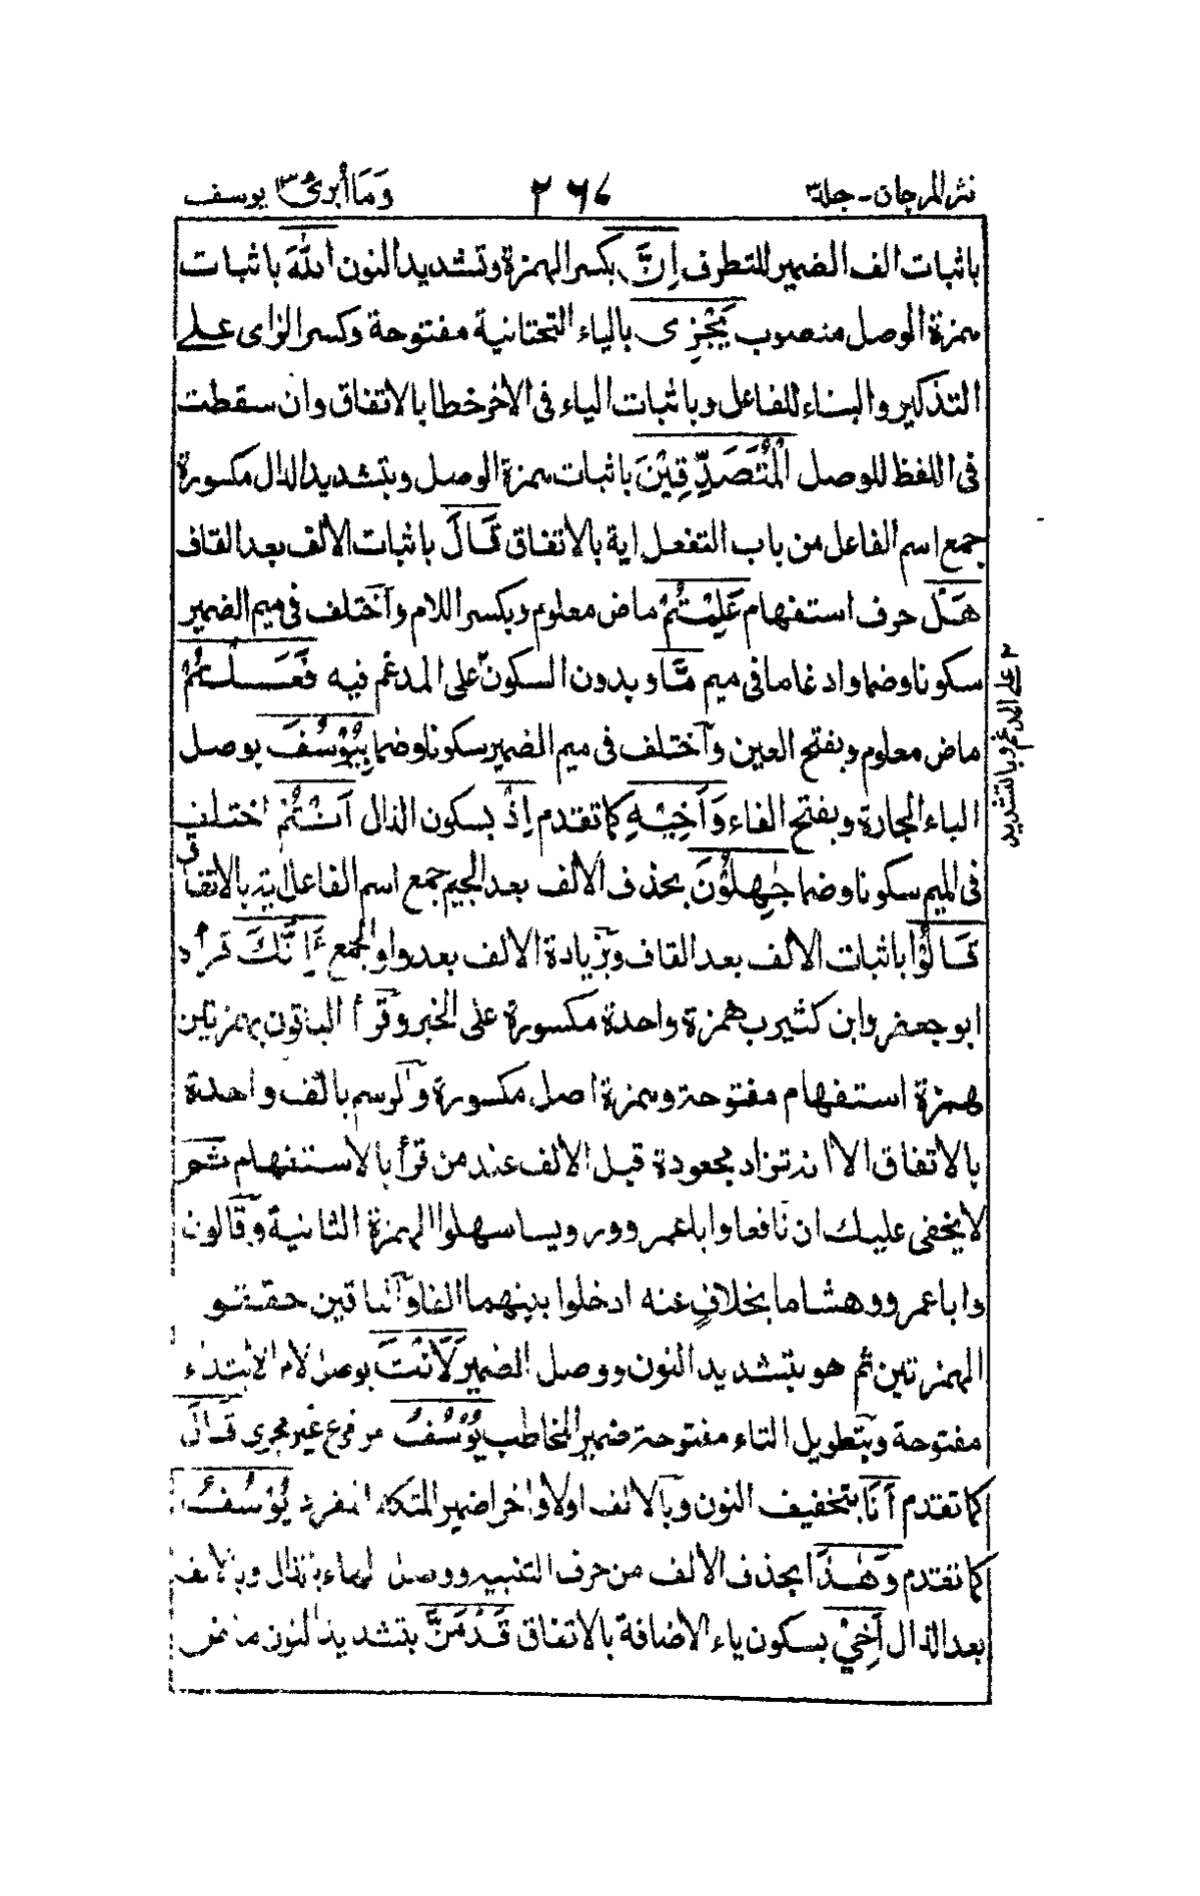 نثر المرجان - جلد ٣
٢٦٧
وَمَا أُبَرِّئُ ١٣ يوسف
باثبات الف الضمير للتطرف اِنَّ بكسر الهمزة وتشديد النون اللّٰهَ باثبات
همزة الوصل منصوب يَجْزِى بالياء التحتانية مفتوحة وكسر الزاى على
التذكير والبناء للفاعل وباثبات الياء فى الاخر خطا بالاتفاق وان سقطت
فى اللفظ للوصل الْمُتَصَدِّقِيْنَ باثبات همزة الوصل وبتشديد الدال مكسورة
جمع اسم الفاعل من باب التفعل اية بالاتفاق قَالَ باثبات الالف بعد القاف
هَلْ حرف استفهام عَلِمْتُمْ ماض معلوم وبكسر اللام وآختلف فى ميم الضمير
سكونا وضما وادغاما فى ميم مَّا وبدون السكون ٢ على المدغم فيه فَعَلْتُمْ
ماض معلوم وبفتح العين وآختلف فى ميم الضمير سكونا وضما بِيُوْسُفَ بوصل
الباء الجارة وبفتح الفاء وَاَخِيْهِ كما تقدم اِذْ بسكون الذال اَنْتُمْ اختلف
فى الميم سكونا وضما جٰهِلُوْنَ بحذف الالف بعد الجيم جمع اسم الفاعل اية بالاتفاق
قَالُوْا باثبات الالف بعد القاف وبزيادة الالف بعد واو الجمع ءَاِنَّكَ قرأه
ابو جعفر وابن كثير بهمزة واحدة مكسورة على الخبر وقرأ الباقون بهمزتين
همزة استفهام مفتوحة وهمزة اصل مكسورة وآلرسم بالف واحدة
بالاتفاق الا انه تزاد مجعودة قبل الالف عند من قرأ بالاستفهام ثم
لا يخفى عليك ان نافعا وابا عمرو ورويسا سهلوا الهمزة الثانية وقالون
وابا عمرو وهشاما بخلاف عنه ادخلوا بينهما الفا وآلباقين حققوا
الهمزتين ثم هو بتشديد النون ووصل الضمير لَاَنْتَ بوصل لام الابتداء
مفتوحة وبتطويل التاء مفتوحة ضمير المخاطب يُوْسُفُ مرفوع غير مجرى قَالَ
كما تقدم اَنَا بتخفيف النون وبالالف اولا واخرا ضمير المتكلم المفرد يُوْسُفُ
كما تقدم وَهٰذَا بحذف الالف من حرف التنبيه ووصل الهاء بالذال وبالالف
بعد الذال اَخِيْ بسكون ياء الاضافة بالاتفاق قَدْ مَنَّ بتشديد النون ماض
٢ على المدغم وبالتشديد